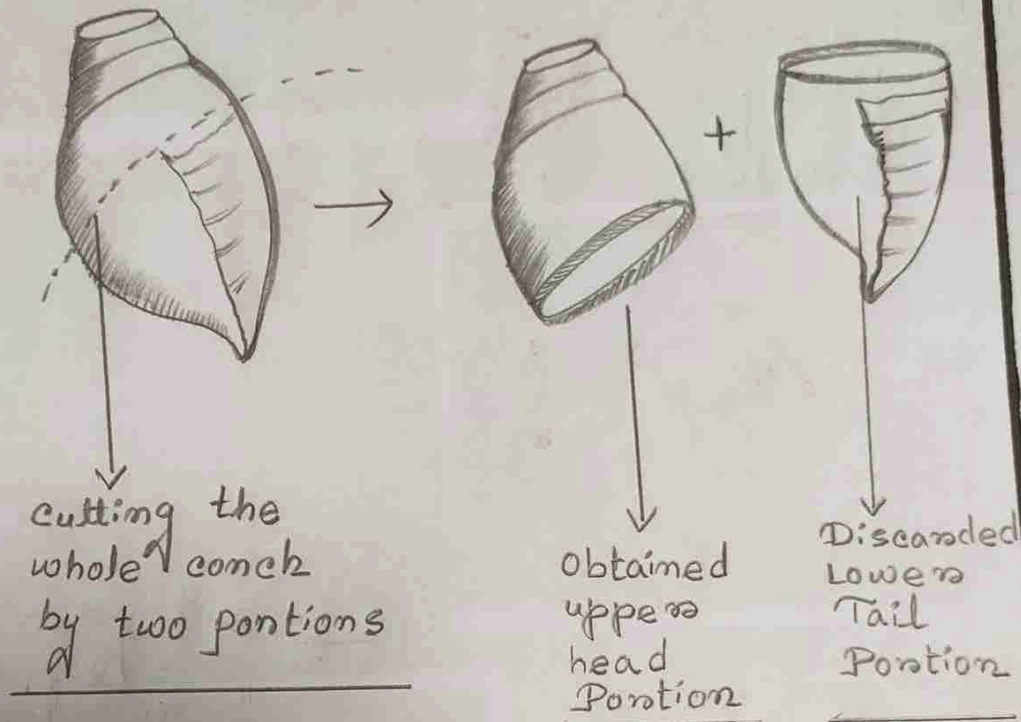 cutting the
whole conch
by two portions
Obtained
upper
head
Portion
Discarded
Lower
Tail
Portion